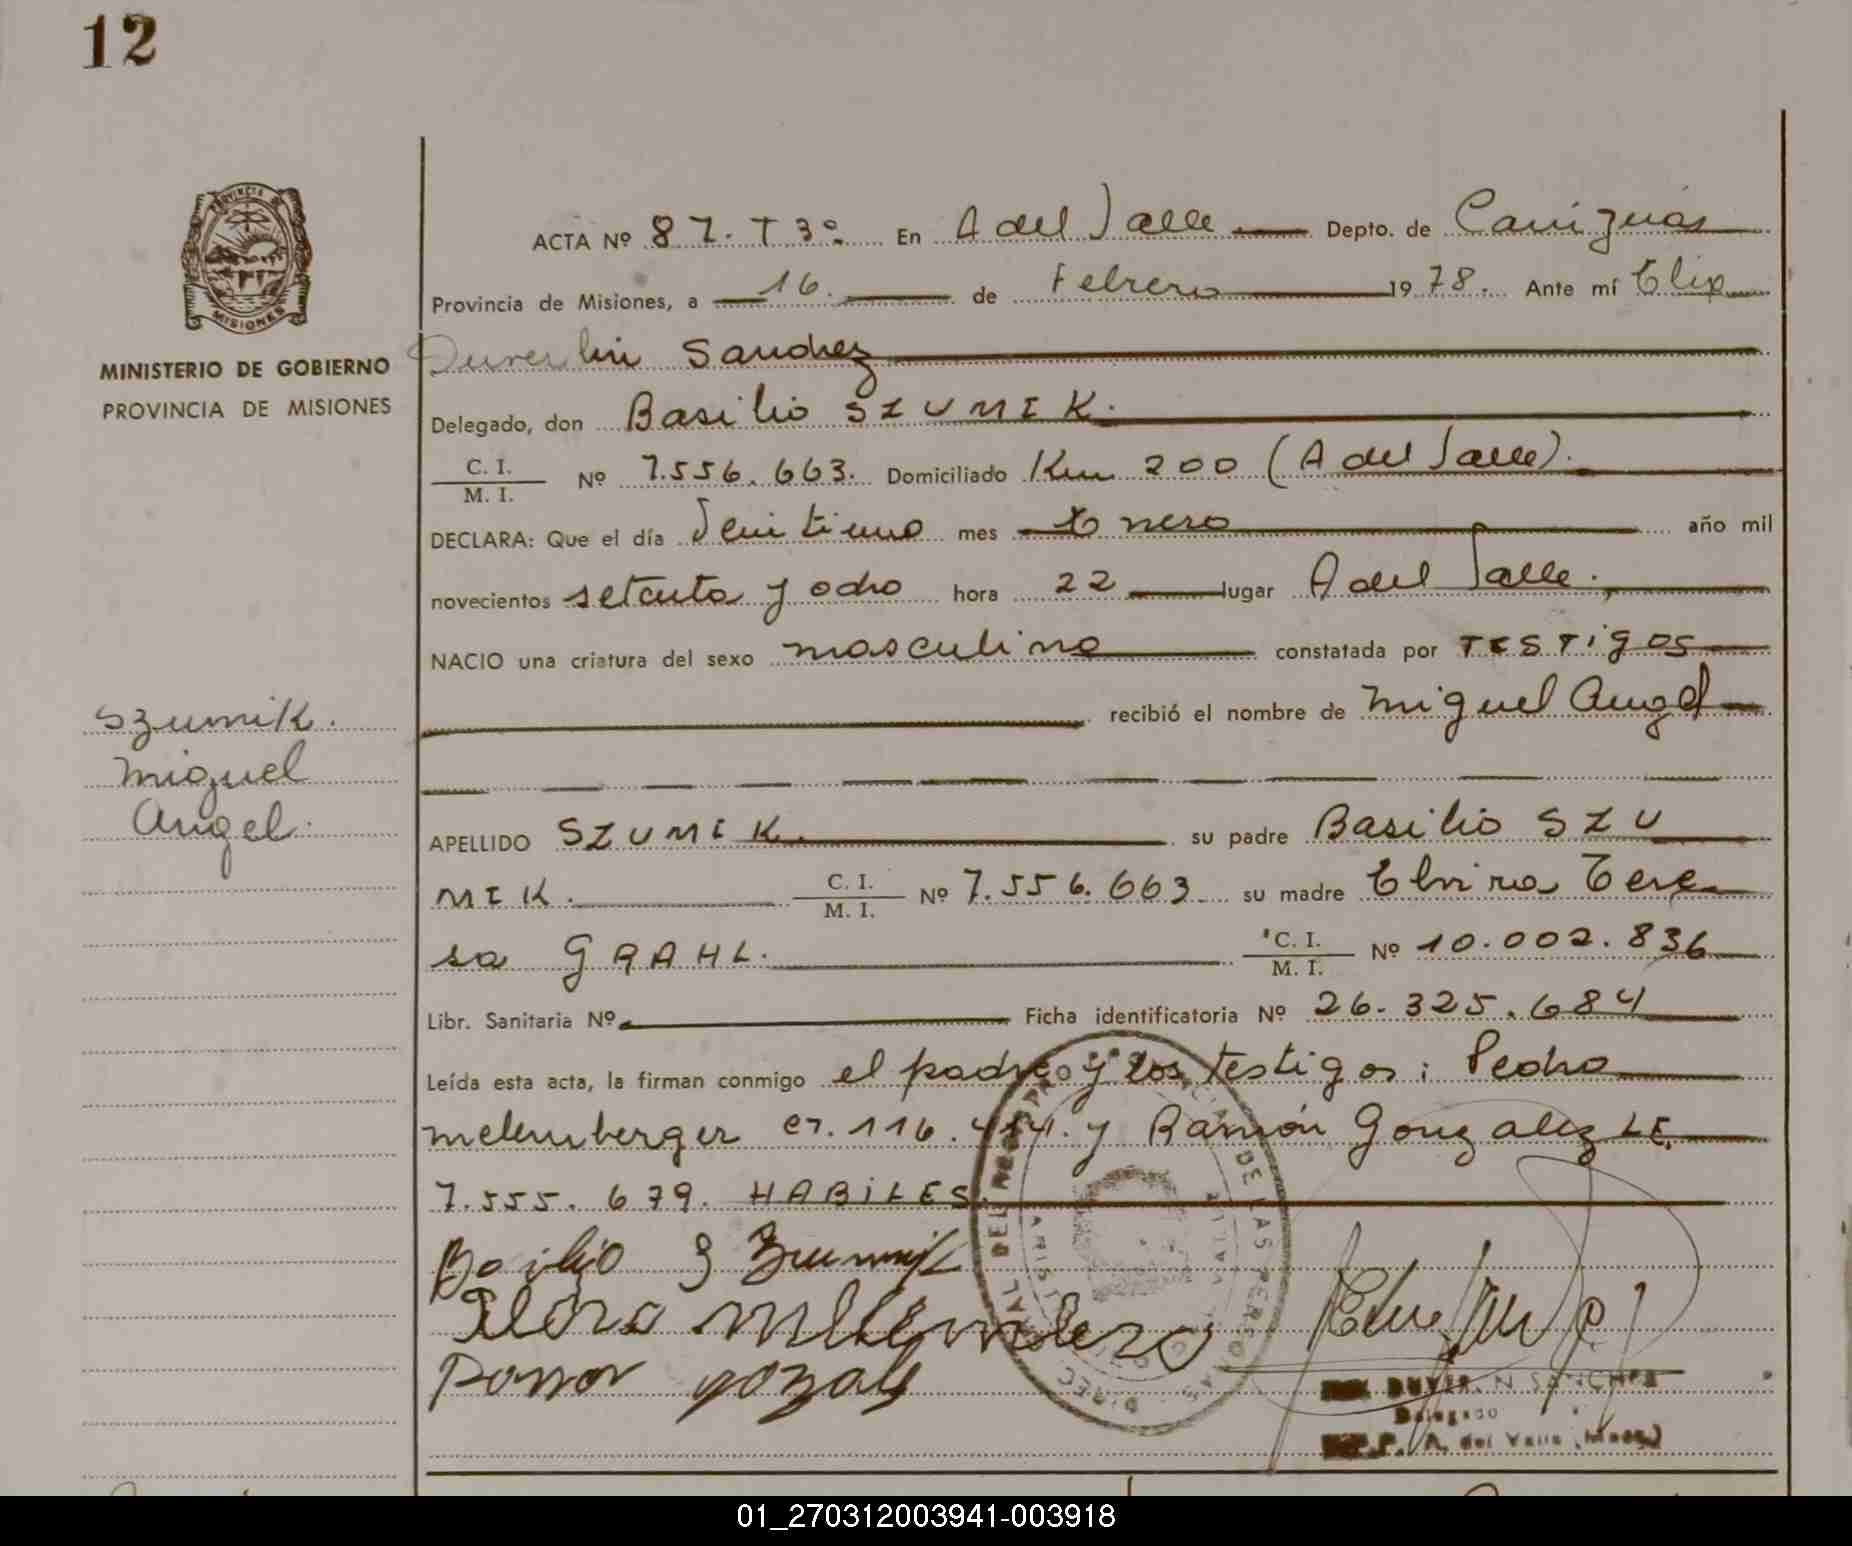 12
PROVINCIA DE
MISIONES
MINISTERIO DE GOBIERNO
PROVINCIA DE MISIONES
Szumik.
Miguel
Angel.
ACTA Nº 87. T 3º En A del Valle Depto. de Cainguas
Provincia de Misiones, a 16. de Febrero 1978. Ante mí Elix
Duverlin Sanchez
Delegado, don Basilio SZUMIK.
C. I. / M. I. Nº 7.556.663. Domiciliado Km 200 (A del Valle).
DECLARA: Que el día Veintiuno mes Enero año mil
novecientos setenta y ocho hora 22 lugar A del Valle.
NACIO una criatura del sexo masculino constatada por TESTIGOS
recibió el nombre de Miguel Angel
APELLIDO SZUMIK. su padre Basilio SZU
MIK. C. I. / M. I. Nº 7.556.663 su madre Elvira Tere
sa GRAHL. C. I. / M. I. Nº 10.002.836
Libr. Sanitaria Nº Ficha identificatoria Nº 26.325.684
Leída esta acta, la firman conmigo el padre y los testigos: Pedro
Melemberger C7.116.414. y Ramón Gonzalez LE.
7.555.679. HABILES.
Basilio Szumik
DUVERLIN SANCHEZ
Delegado
A. del Valle (Mnes.)
01_270312003941-003918